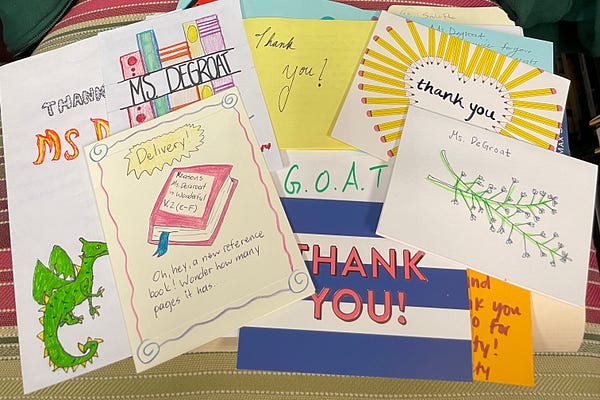 THANK
MS D
MS DEGROAT
Delivery!
Reasons
Ms. DeGroat
is Wonderful
V. 2 (E-F)
Oh, hey, a new reference
book! Wonder how many
pages it has.
Thank
you!
G.O.A.T
THANK
YOU!
thank you
Ms. DeGroat
Ms. Degroat,
for your
nd
k you
o for
ty!